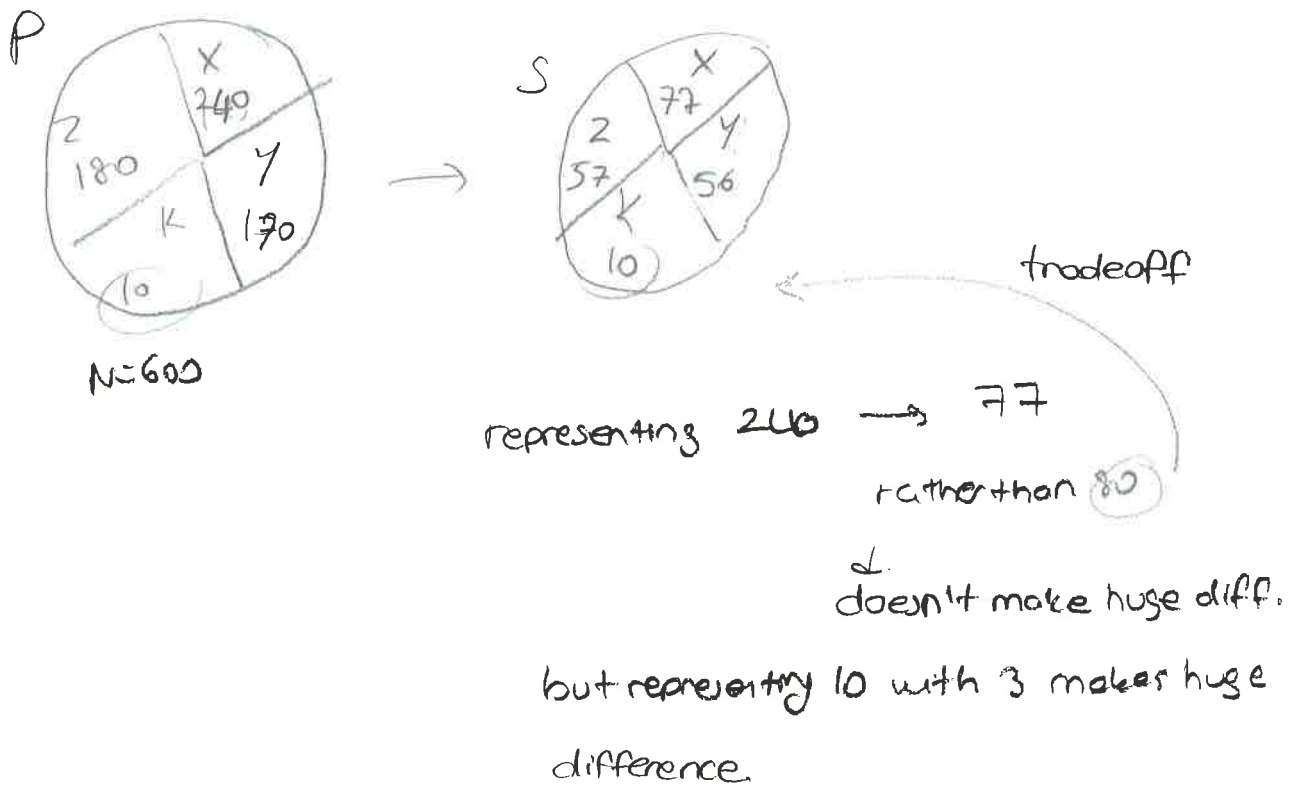 P
X
240
Z
180
Y
170
K
10
N=600
S
X
77
Z
57
Y
56
K
10
tradeoff
representing 240 → 77
rather than 80
↓
doesn't make huge diff.
but representing 10 with 3 makes huge
difference.